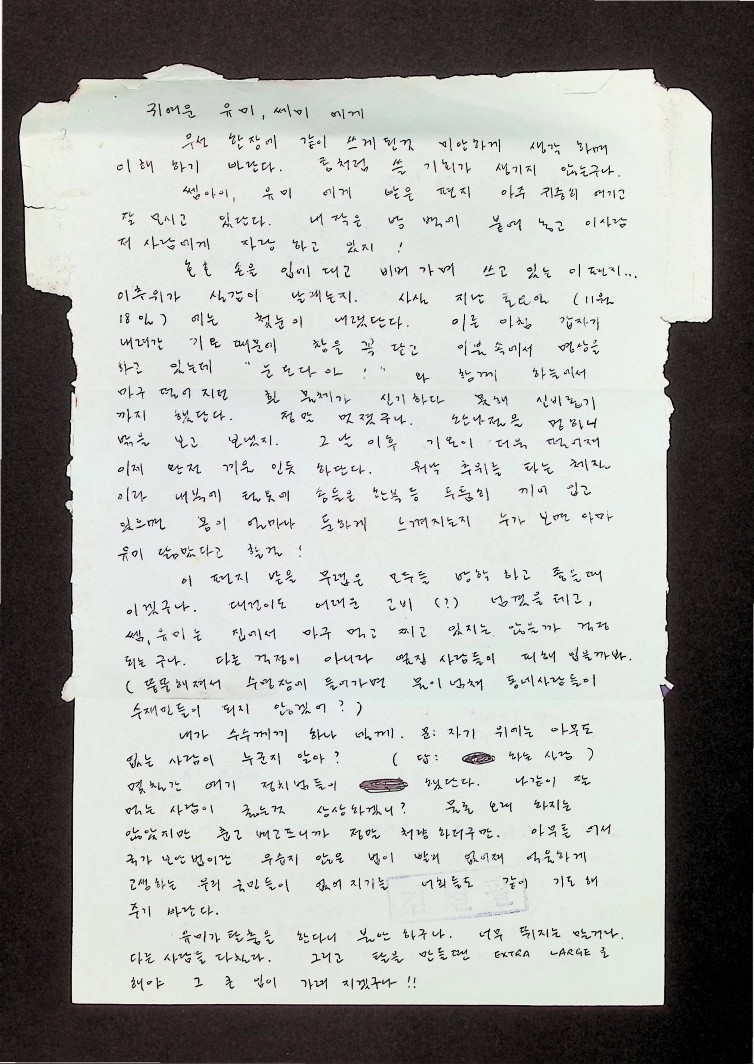 귀여운 유미, 쎄미 에게
우선 한장에 같이 쓰게된것 미안하게 생각 하며
이해 하기 바란다. 좀처럼 쓸 기회가 생기지 않는구나.
쎔아이, 유미 에게 받은 편지 아주 귀중히 여기고
잘 모시고 있단다. 내 작은 방 벽에 붙여 놓고 이사람
저 사람에게 자랑 하고 있지 !
호호 손을 입에 대고 비벼 가며 쓰고 있는 이편지...
이추위가 실감이 날레는지. 사실 지난 토요일 (11월
18일) 에는 첫눈이 내렸단다. 이른 아침 갑자기
내려간 기온 때문에 창을 꼭 닫고 이불 속에서 명상을
하고 있는데 "눈 온다 아 !" 와 함께 하늘에서
마구 떨어 지던 흰 물체가 신기하다 못해 신비롭기
까지 했단다. 정말 멋졌구나. 오전을 멍하니
밖을 보고 보냈지. 그날 이후 기온이 더욱 떨어져
이제 완전 겨울 인듯 하단다. 워낙 추위를 타는 체질
이라 내복에 털옷에 솜들은 한복등 두툼히 끼어 입고
있으면 몸이 얼마나 둔하게 느껴지는지 누가 보면 아마
유미 닮았다고 할걸 !
이 편지 받을 무렵은 모두들 방학 하고 좋을때
이겠구나. 대건이도 어려운 고비 (?) 넘겼을 테고,
쎔, 유미는 집에서 마구 먹고 찌고 있지는 않을까 걱정
되는 구나. 다른 걱정이 아니라 옆집 사람들이 피해 입을까봐.
( 뚱뚱해져서 수영장에 들어가면 물이 넘쳐 동네사람들이
수재민들이 되지 않겠어 ? )
내가 수수께끼 하나 낼께. 문: 자기 위에는 아무도
없는 사람이 누군지 알아 ? ( 답: 하는 사람 )
몇칠간 여기 정치범들이 했단다. 나같이 잘
먹는 사람이 굶는것 상상하겠니? 물론 오래 하지는
않았지만 춥고 배고프니까 정말 처량 하더구만. 아무튼 어서
국가 보안법이란 우습지 않은 법이 빨리 없어져 억울하게
고생하는 우리 국민들이 없어 지기를 너희들도 같이 기도 해
주기 바란다.
유미가 탈춤을 한다니 불안 하구나. 너무 뛰지는 말거라.
다른 사람들 다칠라. 그리고 탈을 만들땐 EXTRA LARGE 로
해야 그 큰 입이 가려 지겠구나 !!